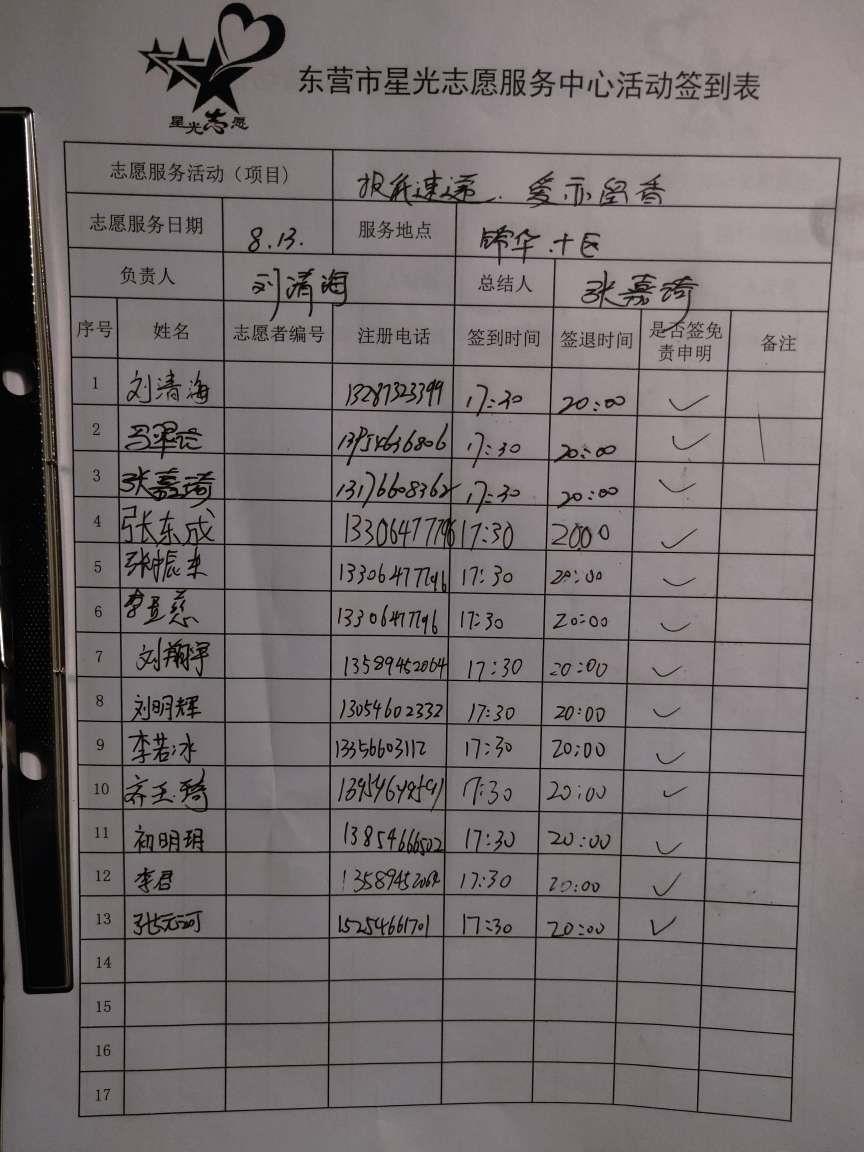 星光志愿
东营市星光志愿服务中心活动签到表
志愿服务活动（项目） 报纸速递、爱亦留香
志愿服务日期 8.13. 服务地点 锦华十区
负责人 刘清海 总结人 张嘉琦
序号 姓名 志愿者编号 注册电话 签到时间 签退时间 是否签免责申明 备注
1 刘清海 13287323399 17:30 20:00 ✓
2 17:30 20:00 ✓
3 张嘉琦 13176608362 17:30 20:00 ✓
4 张东成 13306477796 17:30 2000 ✓
5 张振东 13306477796 17:30 20:00 ✓
6 1330647796 17:30 20:00 ✓
7 刘翔宇 13589452064 17:30 20:00 ✓
8 刘明辉 13054602332 17:30 20:00 ✓
9 李若冰 13356603112 17:30 20:00 ✓
10 齐玉琦 17:30 20:00 ✓
11 初明玥 13854666502 17:30 20:00 ✓
12 李君 13589452064 17:30 20:00 ✓
13 张元珂 15254661701 17:30 20:00 ✓
14
15
16
17